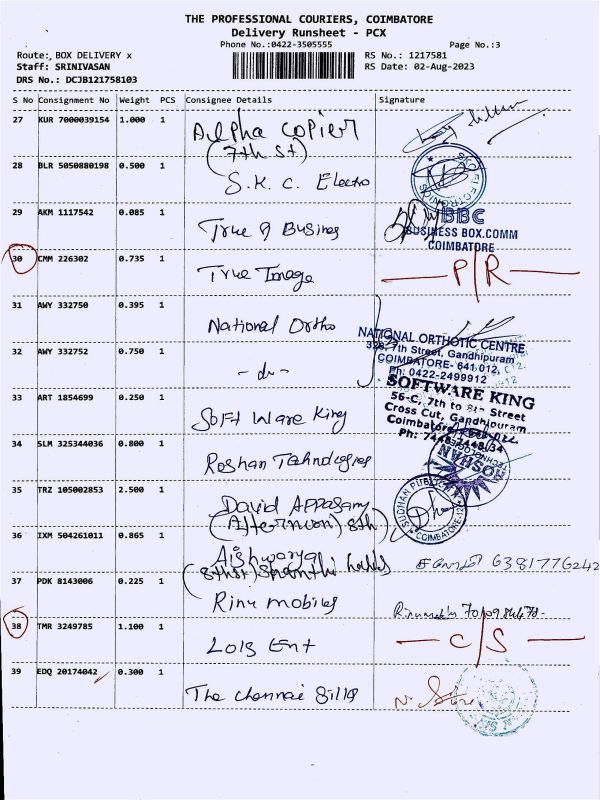 THE PROFESSIONAL COURIERS, COIMBATORE
Delivery Runsheet - PCX
Phone No.:0422-3505555
Page No.:3
Route:, BOX DELIVERY x
RS No.: 1217581
Staff: SRINIVASAN
RS Date: 02-Aug-2023
DRS No.: DCJB121758103
S No Consignment No Weight PCS Consignee Details Signature
27 KUR 7000039154 1.000 1 Alpha Copier
(7th St)
28 BLR 5050880198 0.500 1 S.K.C. Electro
ELECTRONICS
29 AKM 1117542 0.085 1 True of Busines
BBC
BUSINESS BOX.COMM
COIMBATORE
30 CMM 226302 0.735 1 True Image P/R
31 AWY 332750 0.395 1 National Ortho
NATIONAL ORTHOTIC CENTRE
7th Street, Gandhipuram
COIMBATORE- 641 012.
Ph: 0422-2499912
32 AWY 332752 0.750 1 - do -
33 ART 1854699 0.250 1 Soft Ware King
SOFTWARE KING
56-C, 7th to 8th Street
Cross Cut, Gandhipuram
Coimbatore
34 SLM 325344036 0.800 1 Roshan Technologies
ROSHAN
35 TRZ 105002853 2.500 1 David Appasamy
(Afternoon) 8th
SUDHAN PUBLICITY
COIMBATORE-12
36 IXM 504261011 0.865 1 Aishwarya
6381776242
37 PDK 8143006 0.225 1 Rinu mobiles
38 TMR 3249785 1.100 1 Lois Ent C/S
39 EDQ 20174042 0.300 1 The Chennai Silks